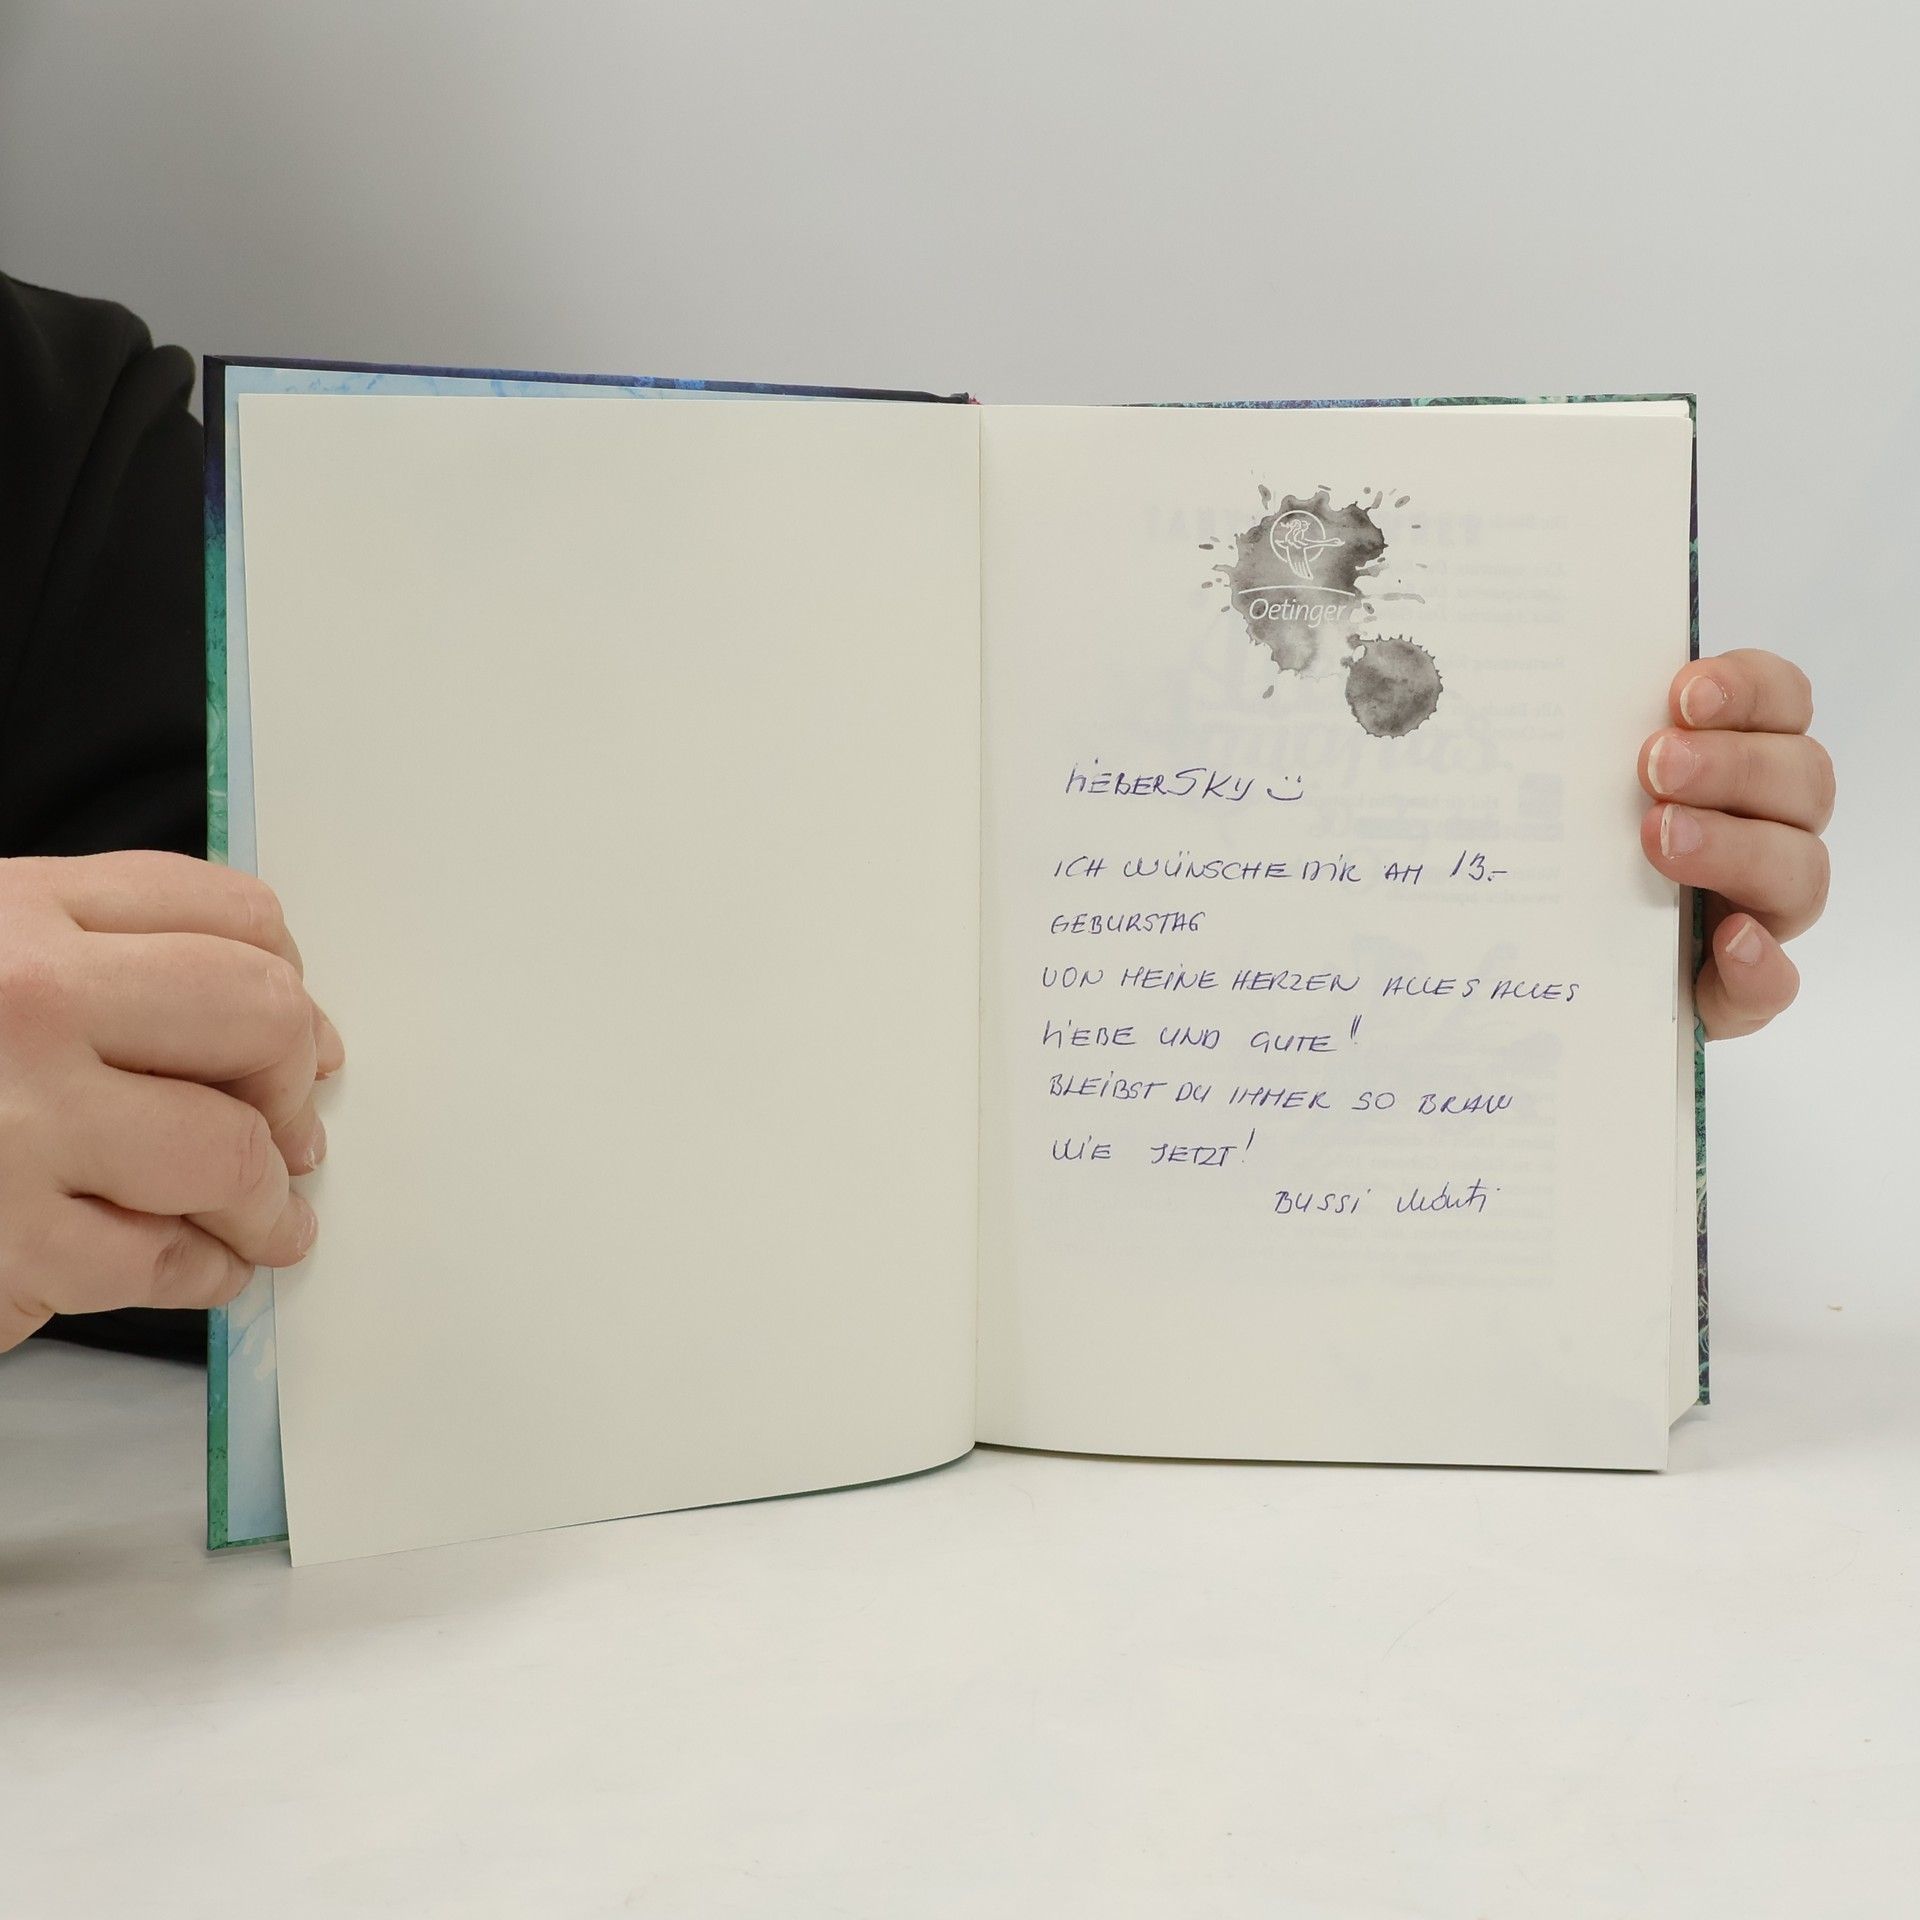 Oetinger
LiEBER SKY :)
ICH WÜNSCHE DiR AM 13.-
GEBURSTAG
VON MEiNE HERZEN ALLES ALLES
LiEBE UND GUTE!!
BLEiBST DU IMMER SO BRAW
WiE JETZT!
BUSSi